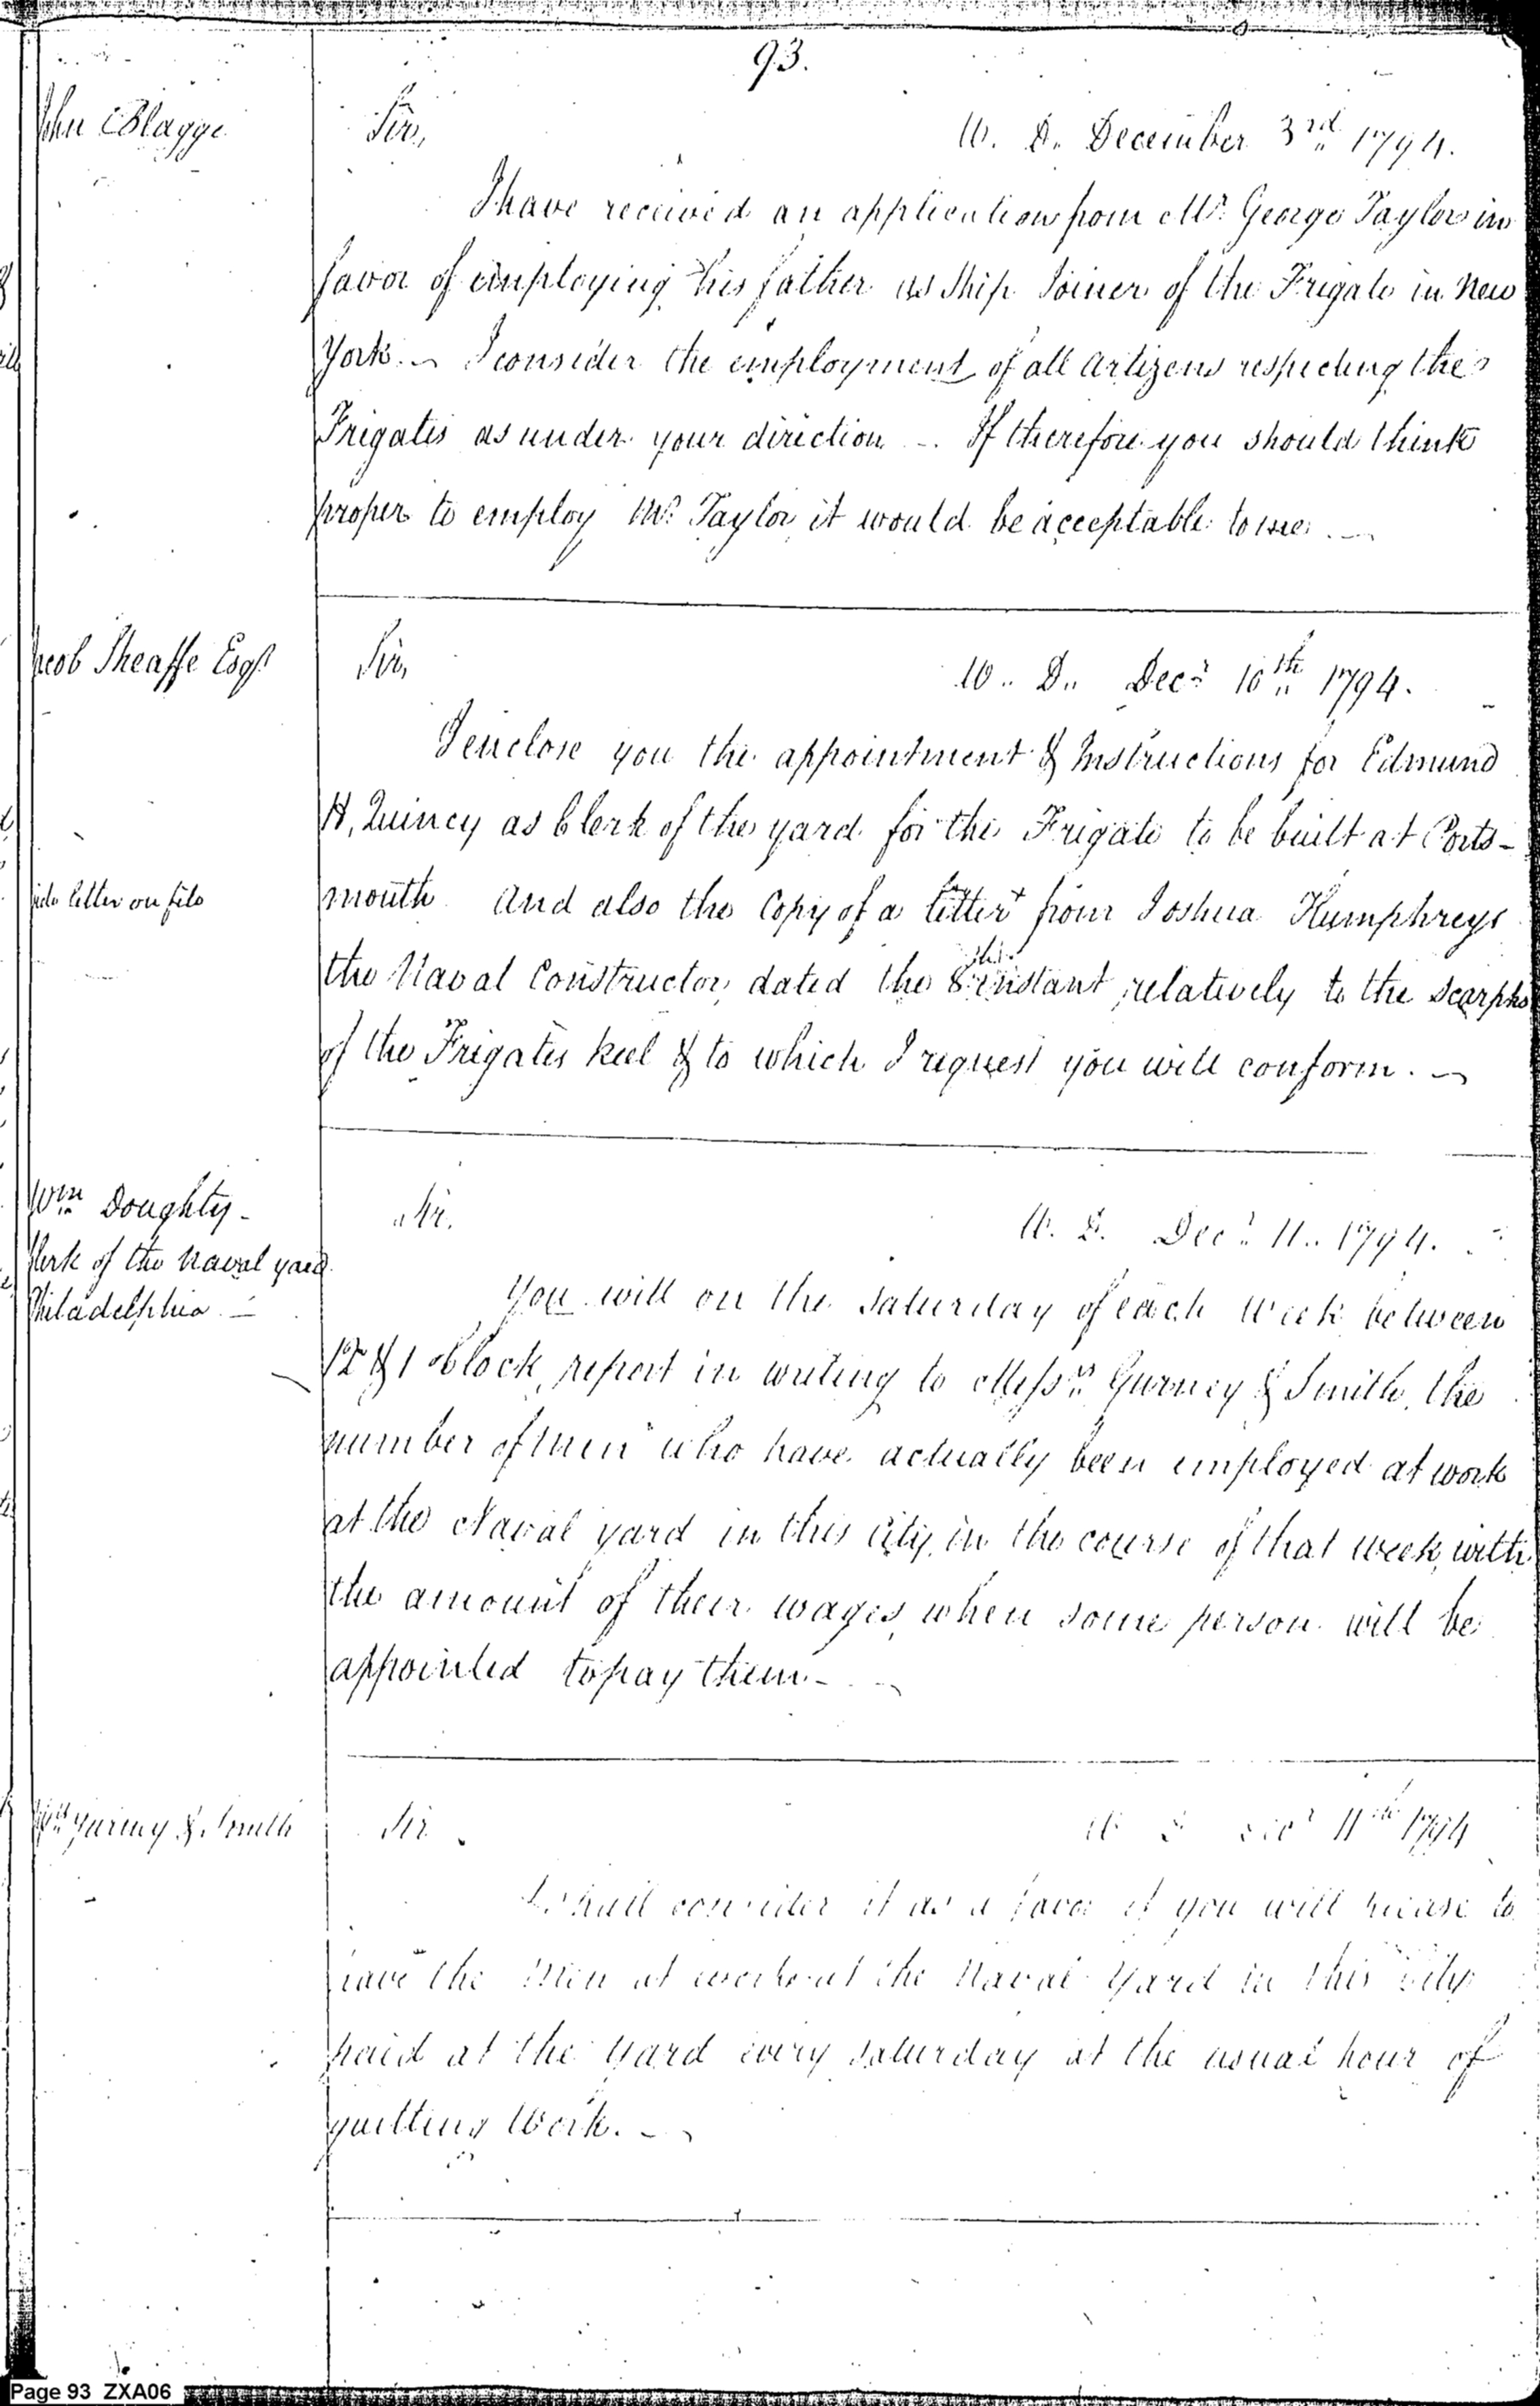 93.
John Blagge
Sir,
W. D. December 3rd 1794.
I have received an application from Mr. George Taylor in
favor of employing his father as Ship Joiner of the Frigate in New
York. I consider the employment of all artizens respecting the
Frigates as under your direction - If therefore you should think
proper to employ Mr. Taylor it would be acceptable to me.
Jacob Sheaffe Esqr
Sir,
W. D. Decr 10th 1794.
I enclose you the appointment & Instructions for Edmund
H. Quincy as Clerk of the yard for the Frigate to be built at Ports-
vide letter on file
mouth and also the Copy of a letter + from Joshua Humphreys
the Naval Constructor, dated the 8th instant relatively to the scarphs
of the Frigates keel & to which I request you will conform.
Wm Doughty -
Clerk of the Naval yard
Philadelphia -
Sir.
W. D. Decr 11. 1794.
You will on the Saturday of each Week between
12 & 1 oClock, report in writing to Messrs Gurney & Smith, the
number of men who have actually been employed at work
at the Naval yard in this City, in the course of that week, with
the amount of their wages, when some person will be
appointed to pay them -
Gurney & Smith
Sir
W D Decr 11th 1794
I shall consider it as a favor if you will please to
have the Men at work at the Naval Yard in this City
paid at the Yard every Saturday at the usual hour of
quitting Work. -
Page 93 ZXA06